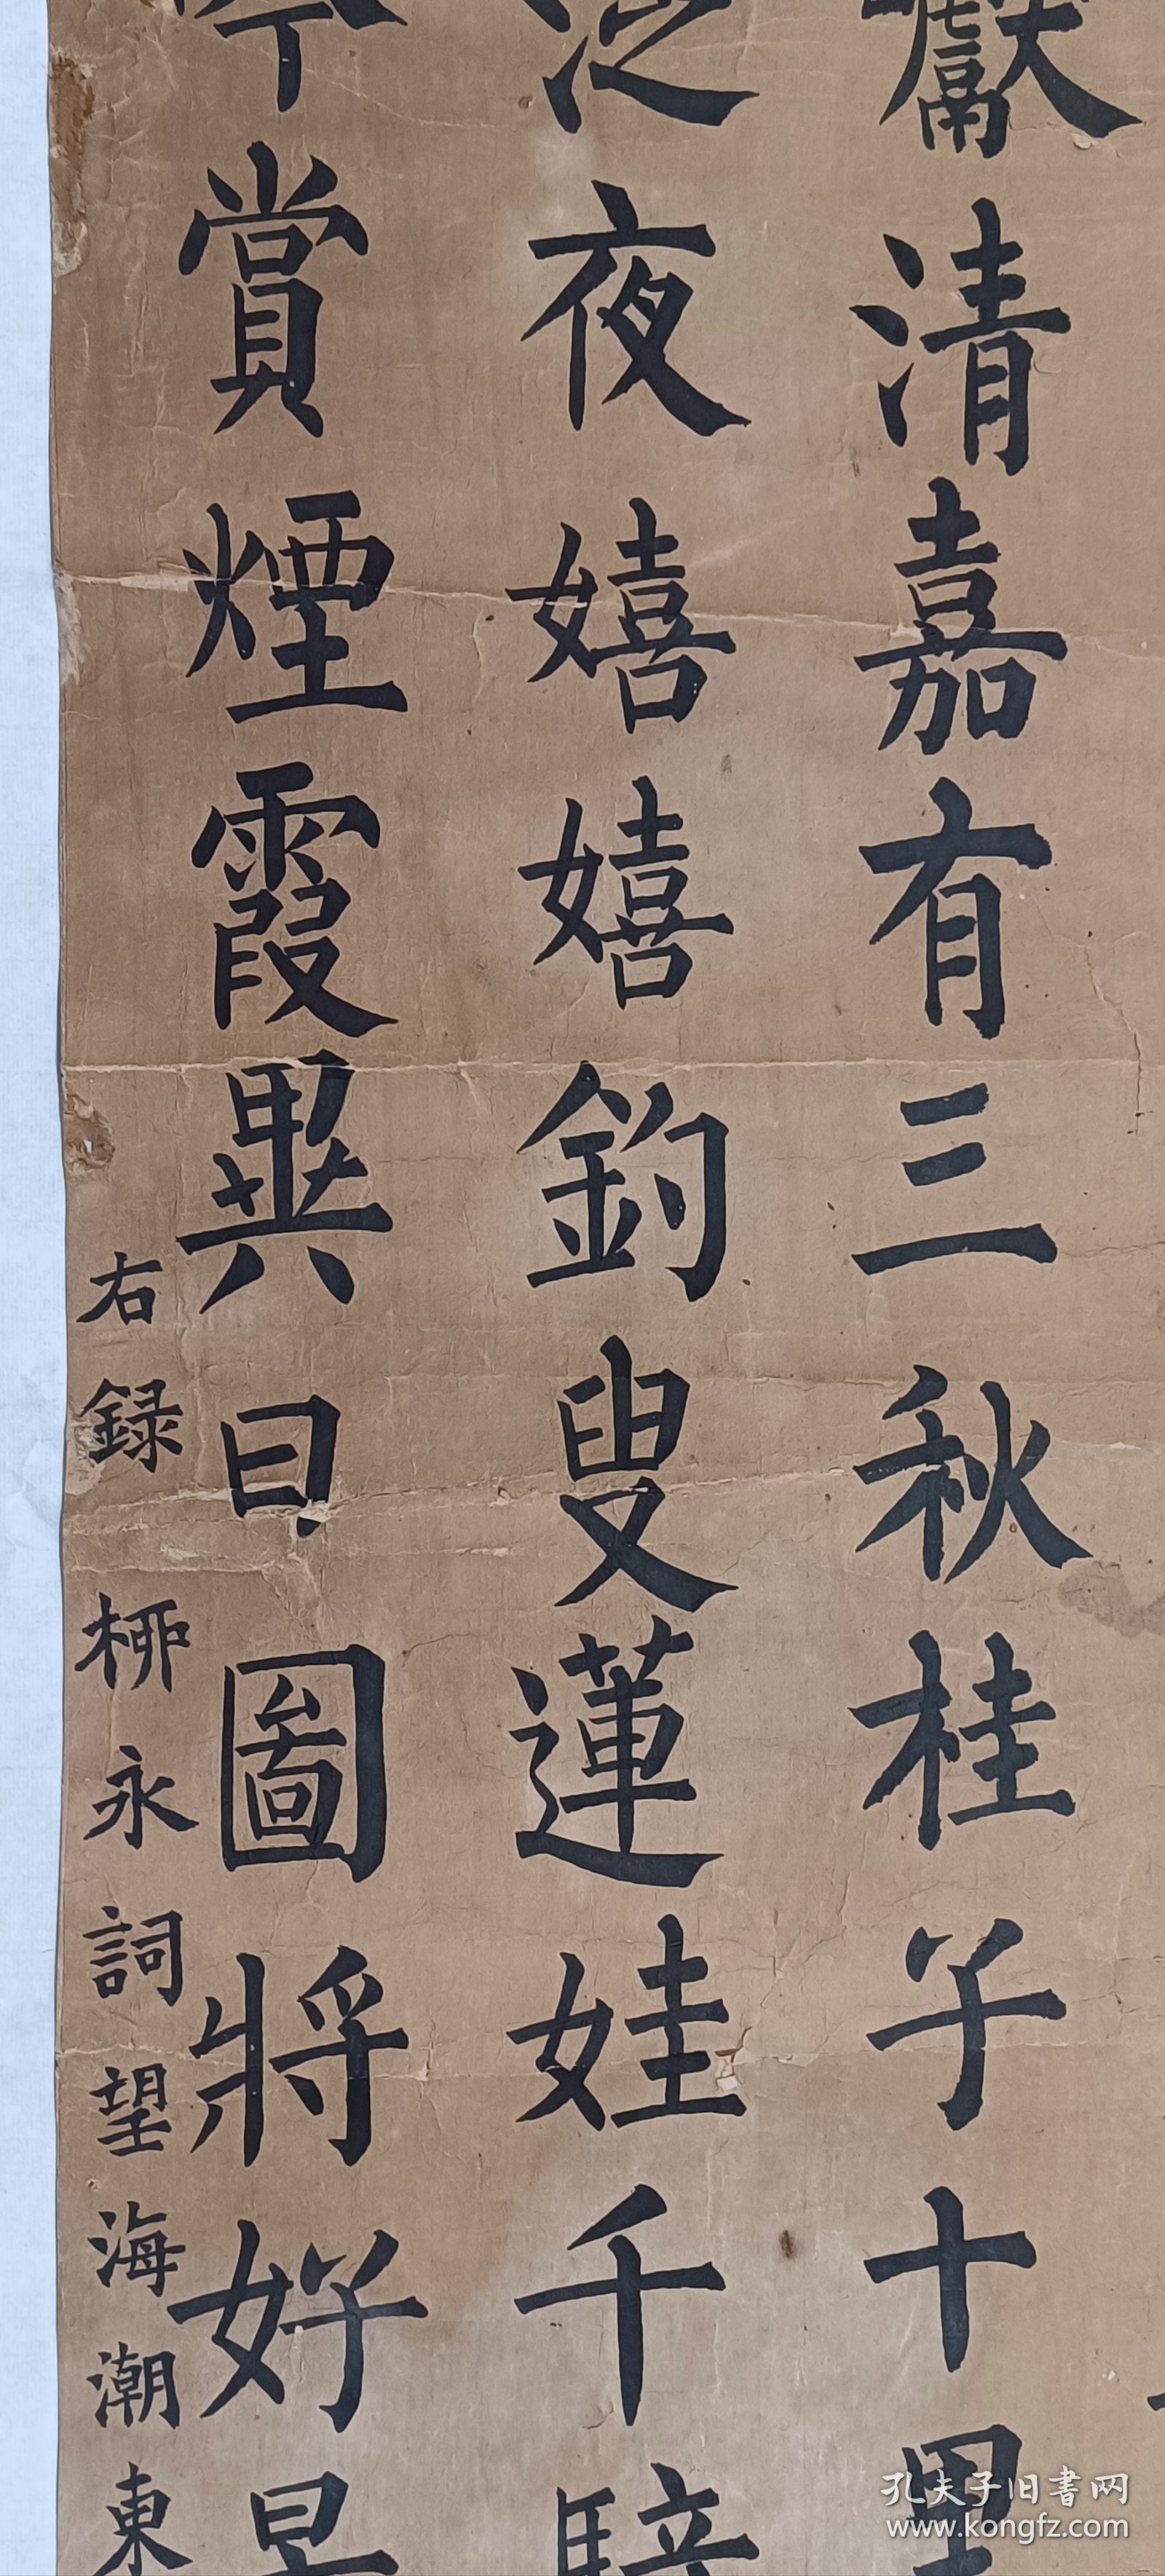 巘清嘉有三秋桂子十里
泛夜嬉嬉釣叟蓮娃千騎
吟賞煙霞異日圖將好景
右録柳永詞望海潮東
孔夫子旧書网
www.kongfz.com